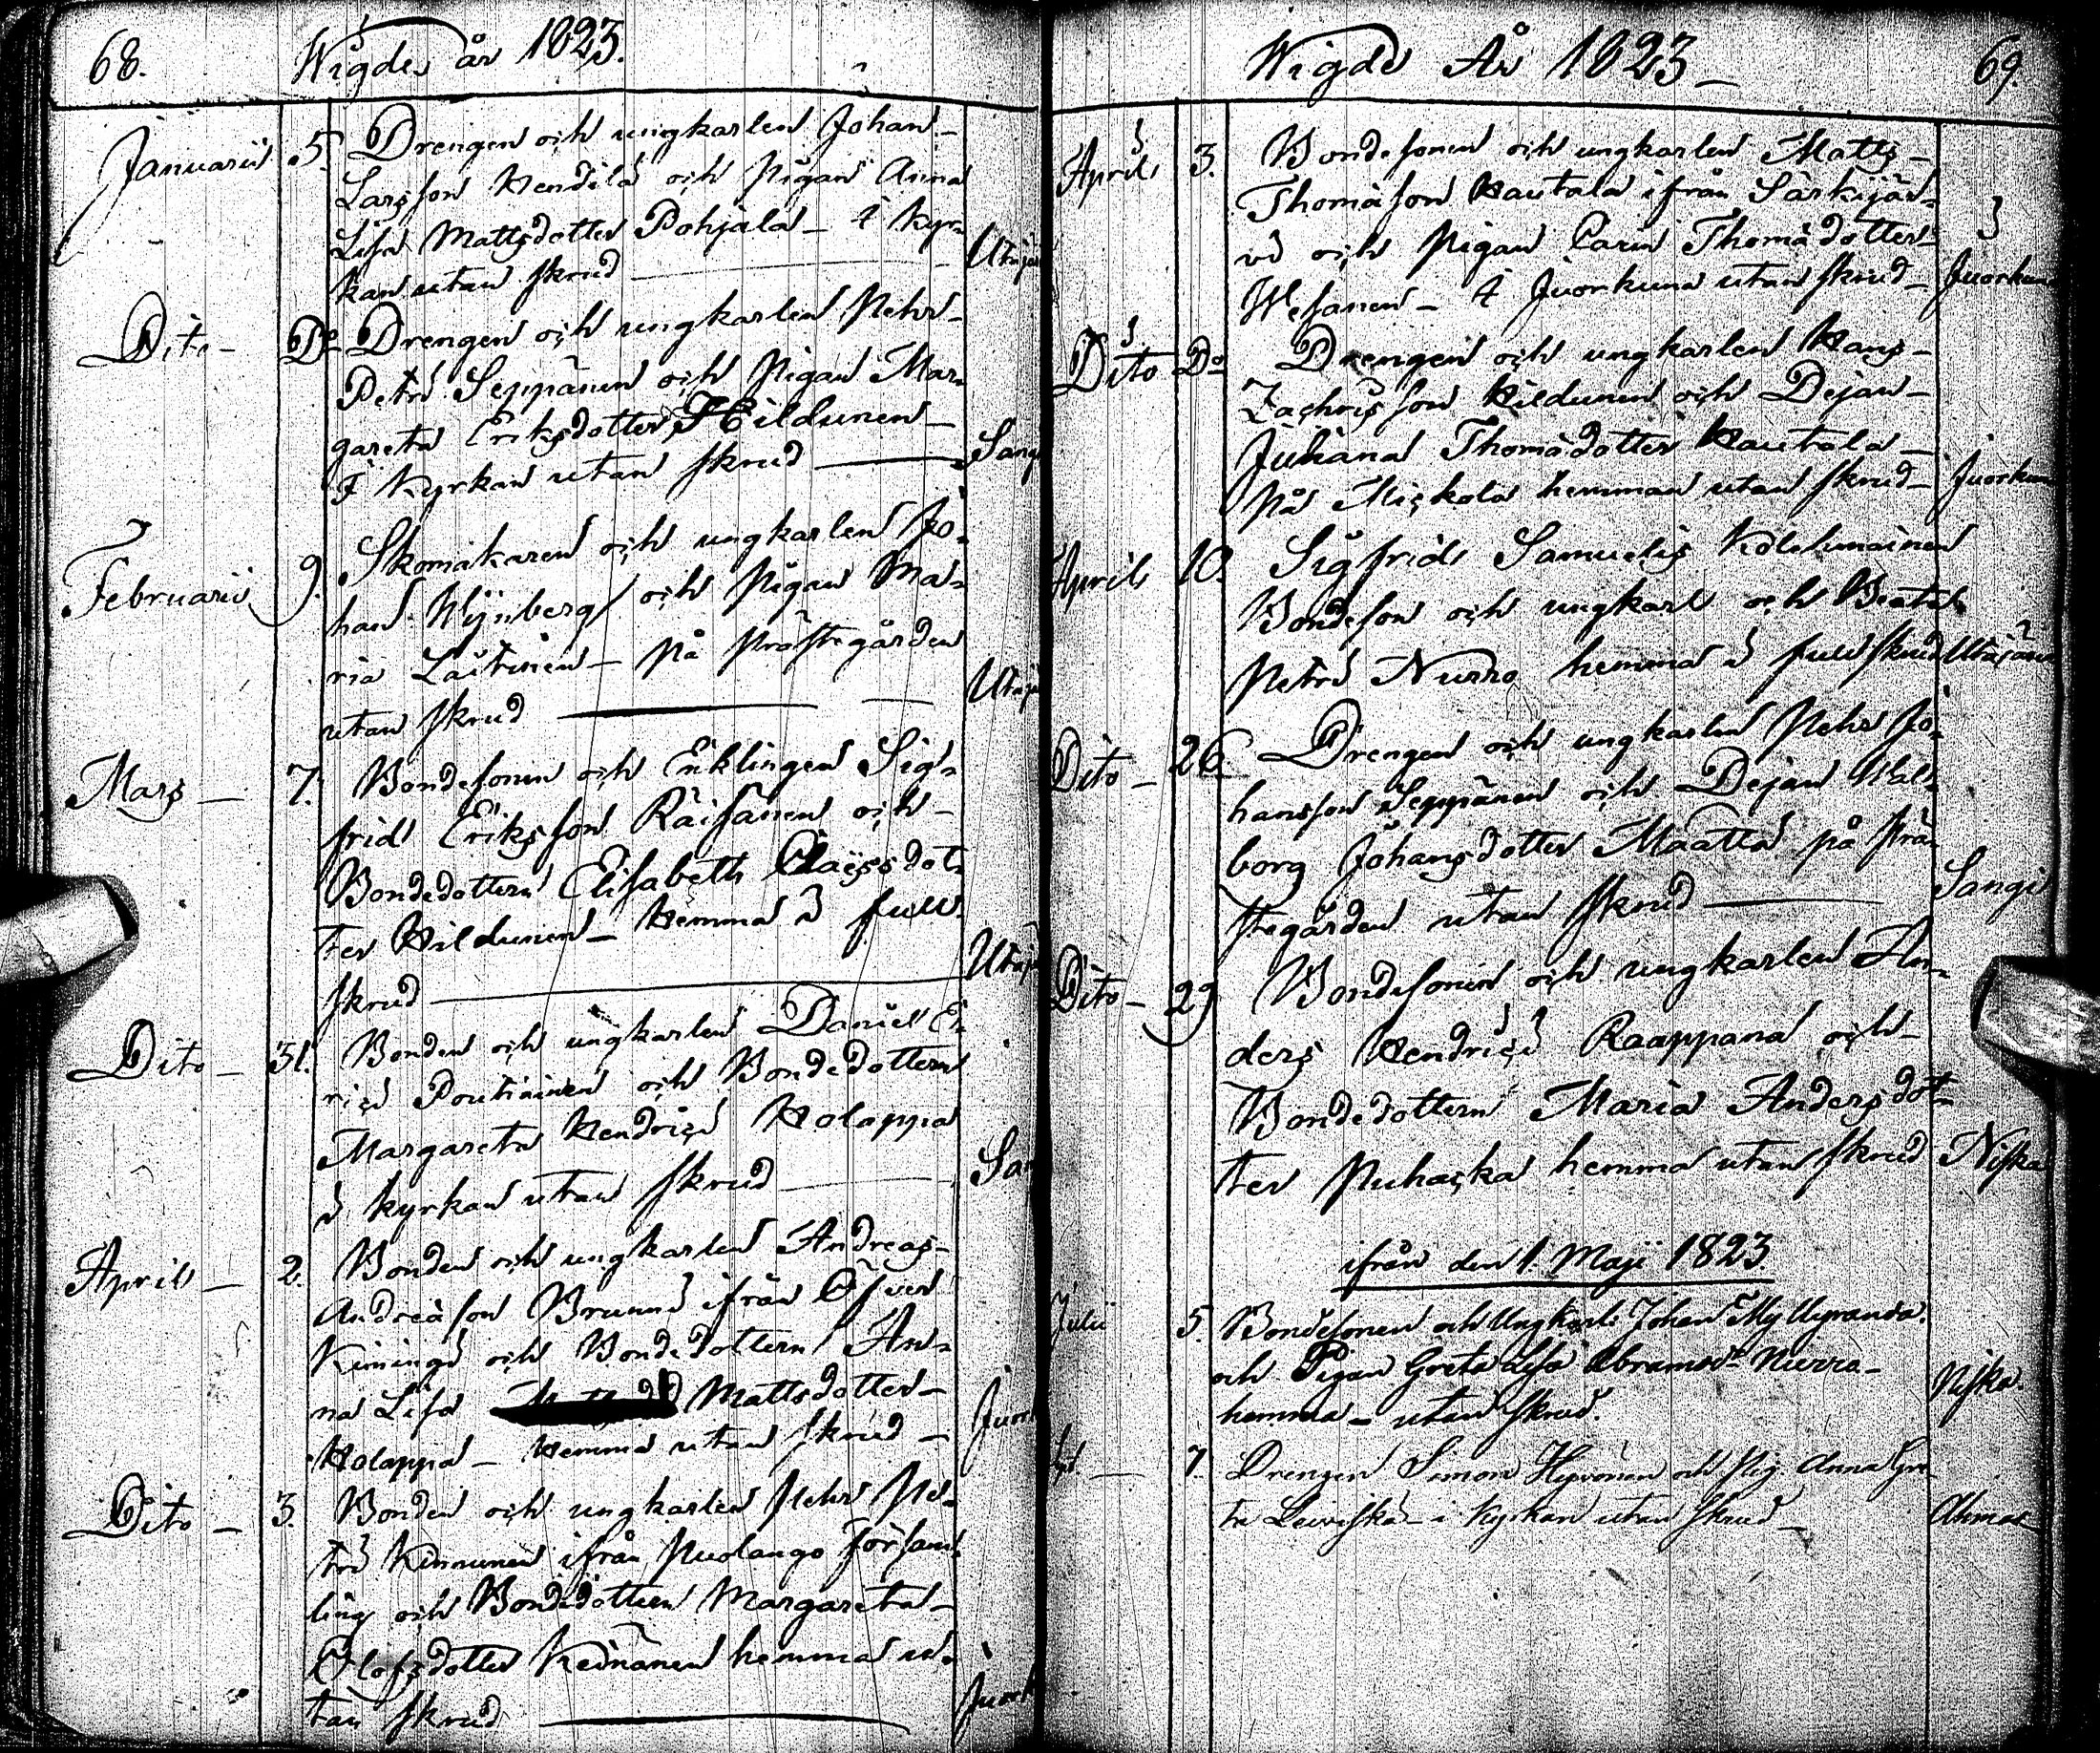 68. Wigde år 1823.
Januarii 5. Drengen och ungkarlen Johan
Larsson Hendilä och Pigan Anna
Lisa Mattsdotter Pohjala - I kyr-
kan utan skrud Utajä
Dito - Do Drengen och ungkarlen Pehr
Petri Seppänen och Pigan Mar-
gareta Eriksdotter Hildunen
I kyrkan utan skrud Sang
Februarii 9. Skomakaren och ungkarlen Jo-
han Wynberg och Pigan Ma-
ria Laitinen - på Prästegården
utan skrud Utajä
Mars - 7. Bondesonen och Enklingen Sig-
frid Eriksson Räisänen och
Bondedottern Elisabeth Claësdot-
ter Hildunen - Hemma i full
skrud Utajä
Dito - 31. Bonden och ungkarlen Daniel E-
rici Poutiainen och Bondedottern
Margareta Hendrici Holappa
i kyrkan utan skrud San
April - 2. Bonden och ungkarlen Andreas
Andreäson Brunni ifrån Öfver
Kimingi och Bondedottern An-
na Lisa Mattsdotter
Holappa - Hemma utan skrud - Juork
Dito - 3. Bonden och ungkarlen Pehr Pe-
tri Kinnunen ifrån Puolango Försam-
ling och Bondedottern Margareta
Olofsdotter Keinänen hemma u-
tan skrud Juork
Wigde År 1823 - 69.
April 3. Bondesonen och ungkarlen Matts
Thomäson Hautala ifrån Särkijär-
vi och Pigan Carin Thomädotter
Wesanen - I Juorkuna utan skrud - Juorkun
Dito Do Drengen och ungkarlen Hans
Zachrisson Hildunen och Dejan
Juliana Thomädotter Hautala
På Mickola hemman utan skrud - Juorkun
April 10. Sigfrid Samuelis Kölelunainen
Bondeson och ungkarl och Beata
Petri Nurro hemma i full skrud Utajärvi
Dito - 26 Drengen och ungkarlen Pehr Jo-
hansson Seppänen och Dejan Wal-
borg Johansdotter Määttä på Prä-
stegården utan skrud Sangi
Dito - 29 Bondesonen och ungkarlen An-
ders Hendrici Raappana och
Bondedottern Maria Andersdot-
ter Puhacka hemma utan skrud Niska
ifrån den 1. Maji 1823
Julii 5. Bondesonen och Ungkarl. Johan Myllyranda
och Pigan Greta Lisa Abramsdr Nurro -
hemma - utan skrud. Niska.
7. Drengen Simon Hyvönen och Pig. Anna Gre-
ta Leiviskä - i kyrkan utan skrud - Ahmas